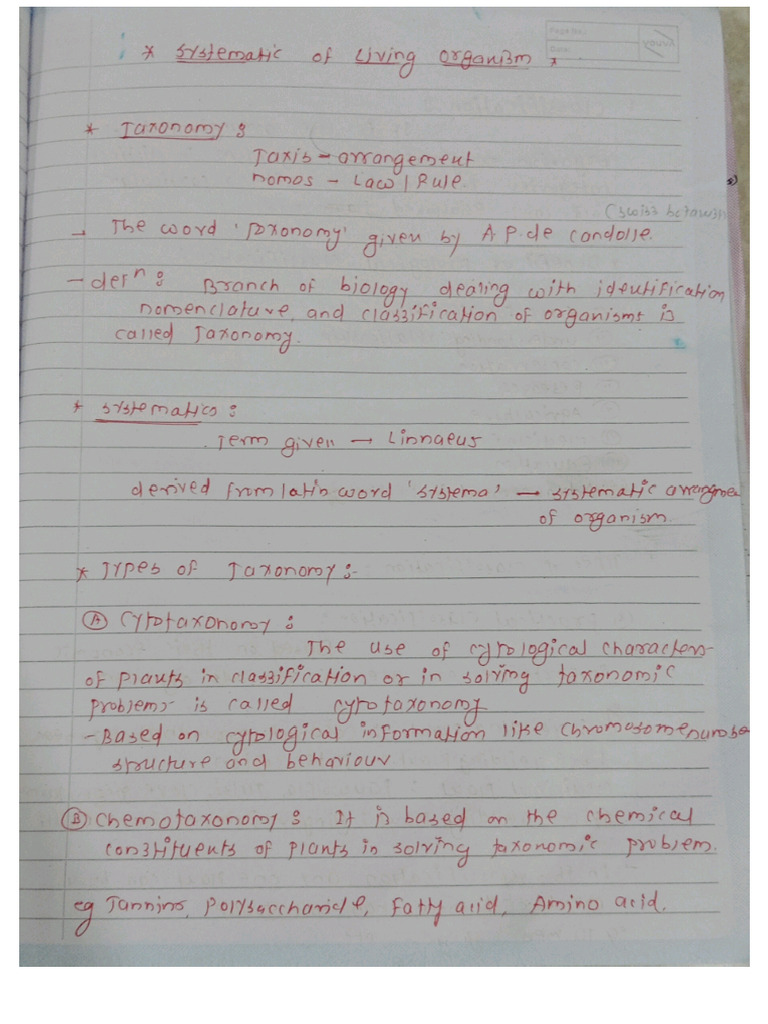 * Systematic of Living Organism *
Page No.
Date:
* Taxonomy :
Taxis - arrangement
nomos - Law / Rule.
(swiss botanist)
→ The word 'Taxonomy' given by A.P. de Candolle.
- defⁿ : Branch of biology dealing with identification
nomenclature, and classification of organisms is
called Taxonomy.
* Systematics :
Term given → Linnaeus
derived from latin word 'systema' → systematic
of organism.
* Types of Taxonomy :-
Ⓐ Cytotaxonomy :
The use of cytological characters
of plants in classification or in solving taxonomic
problems is called cytotaxonomy
- Based on cytological information like chromosome number
structure and behaviour
Ⓑ Chemotaxonomy : It is based on the chemical
constituents of plants in solving taxonomic problem.
eg Tannins, Polysaccharide, Fatty acid, Amino acid.